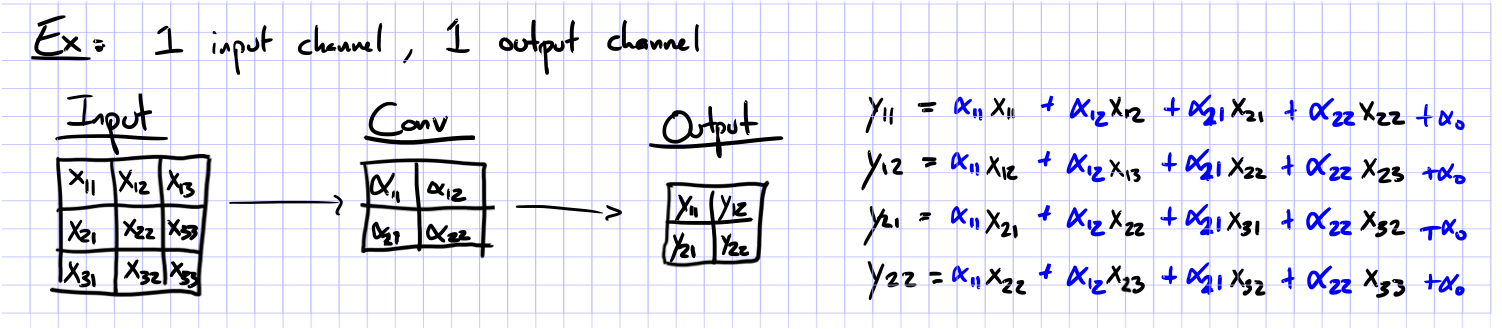 Ex: 1 input channel, 1 output channel
Input
x₁₁ x₁₂ x₁₃
x₂₁ x₂₂ x₃₃
x₃₁ x₃₂ x₃₃
Conv
α₁₁ α₁₂
α₂₁ α₂₂
Output
y₁₁ y₁₂
y₂₁ y₂₂
y₁₁ = α₁₁x₁₁ + α₁₂x₁₂ + α₂₁x₂₁ + α₂₂x₂₂ + α₀
y₁₂ = α₁₁x₁₂ + α₁₂x₁₃ + α₂₁x₂₂ + α₂₂x₂₃ + α₀
y₂₁ = α₁₁x₂₁ + α₁₂x₂₂ + α₂₁x₃₁ + α₂₂x₃₂ + α₀
y₂₂ = α₁₁x₂₂ + α₁₂x₂₃ + α₂₁x₃₂ + α₂₂x₃₃ + α₀